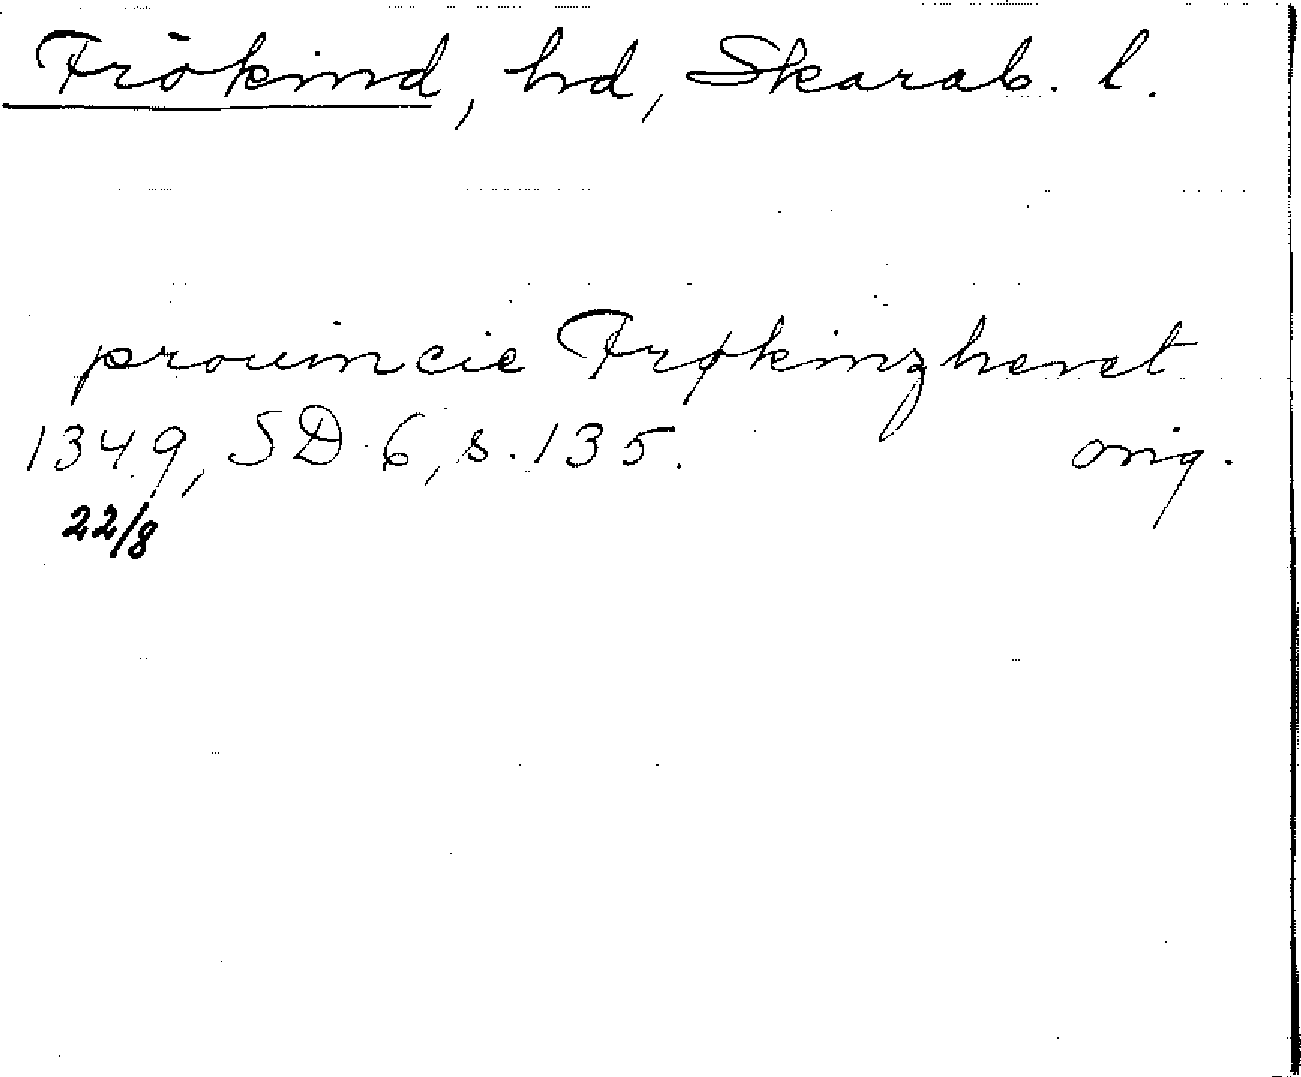 Frökind, hd, Skarab. l.
prouincie Frøkinzheret
1349, SD 6, s. 135. orig.
22/8